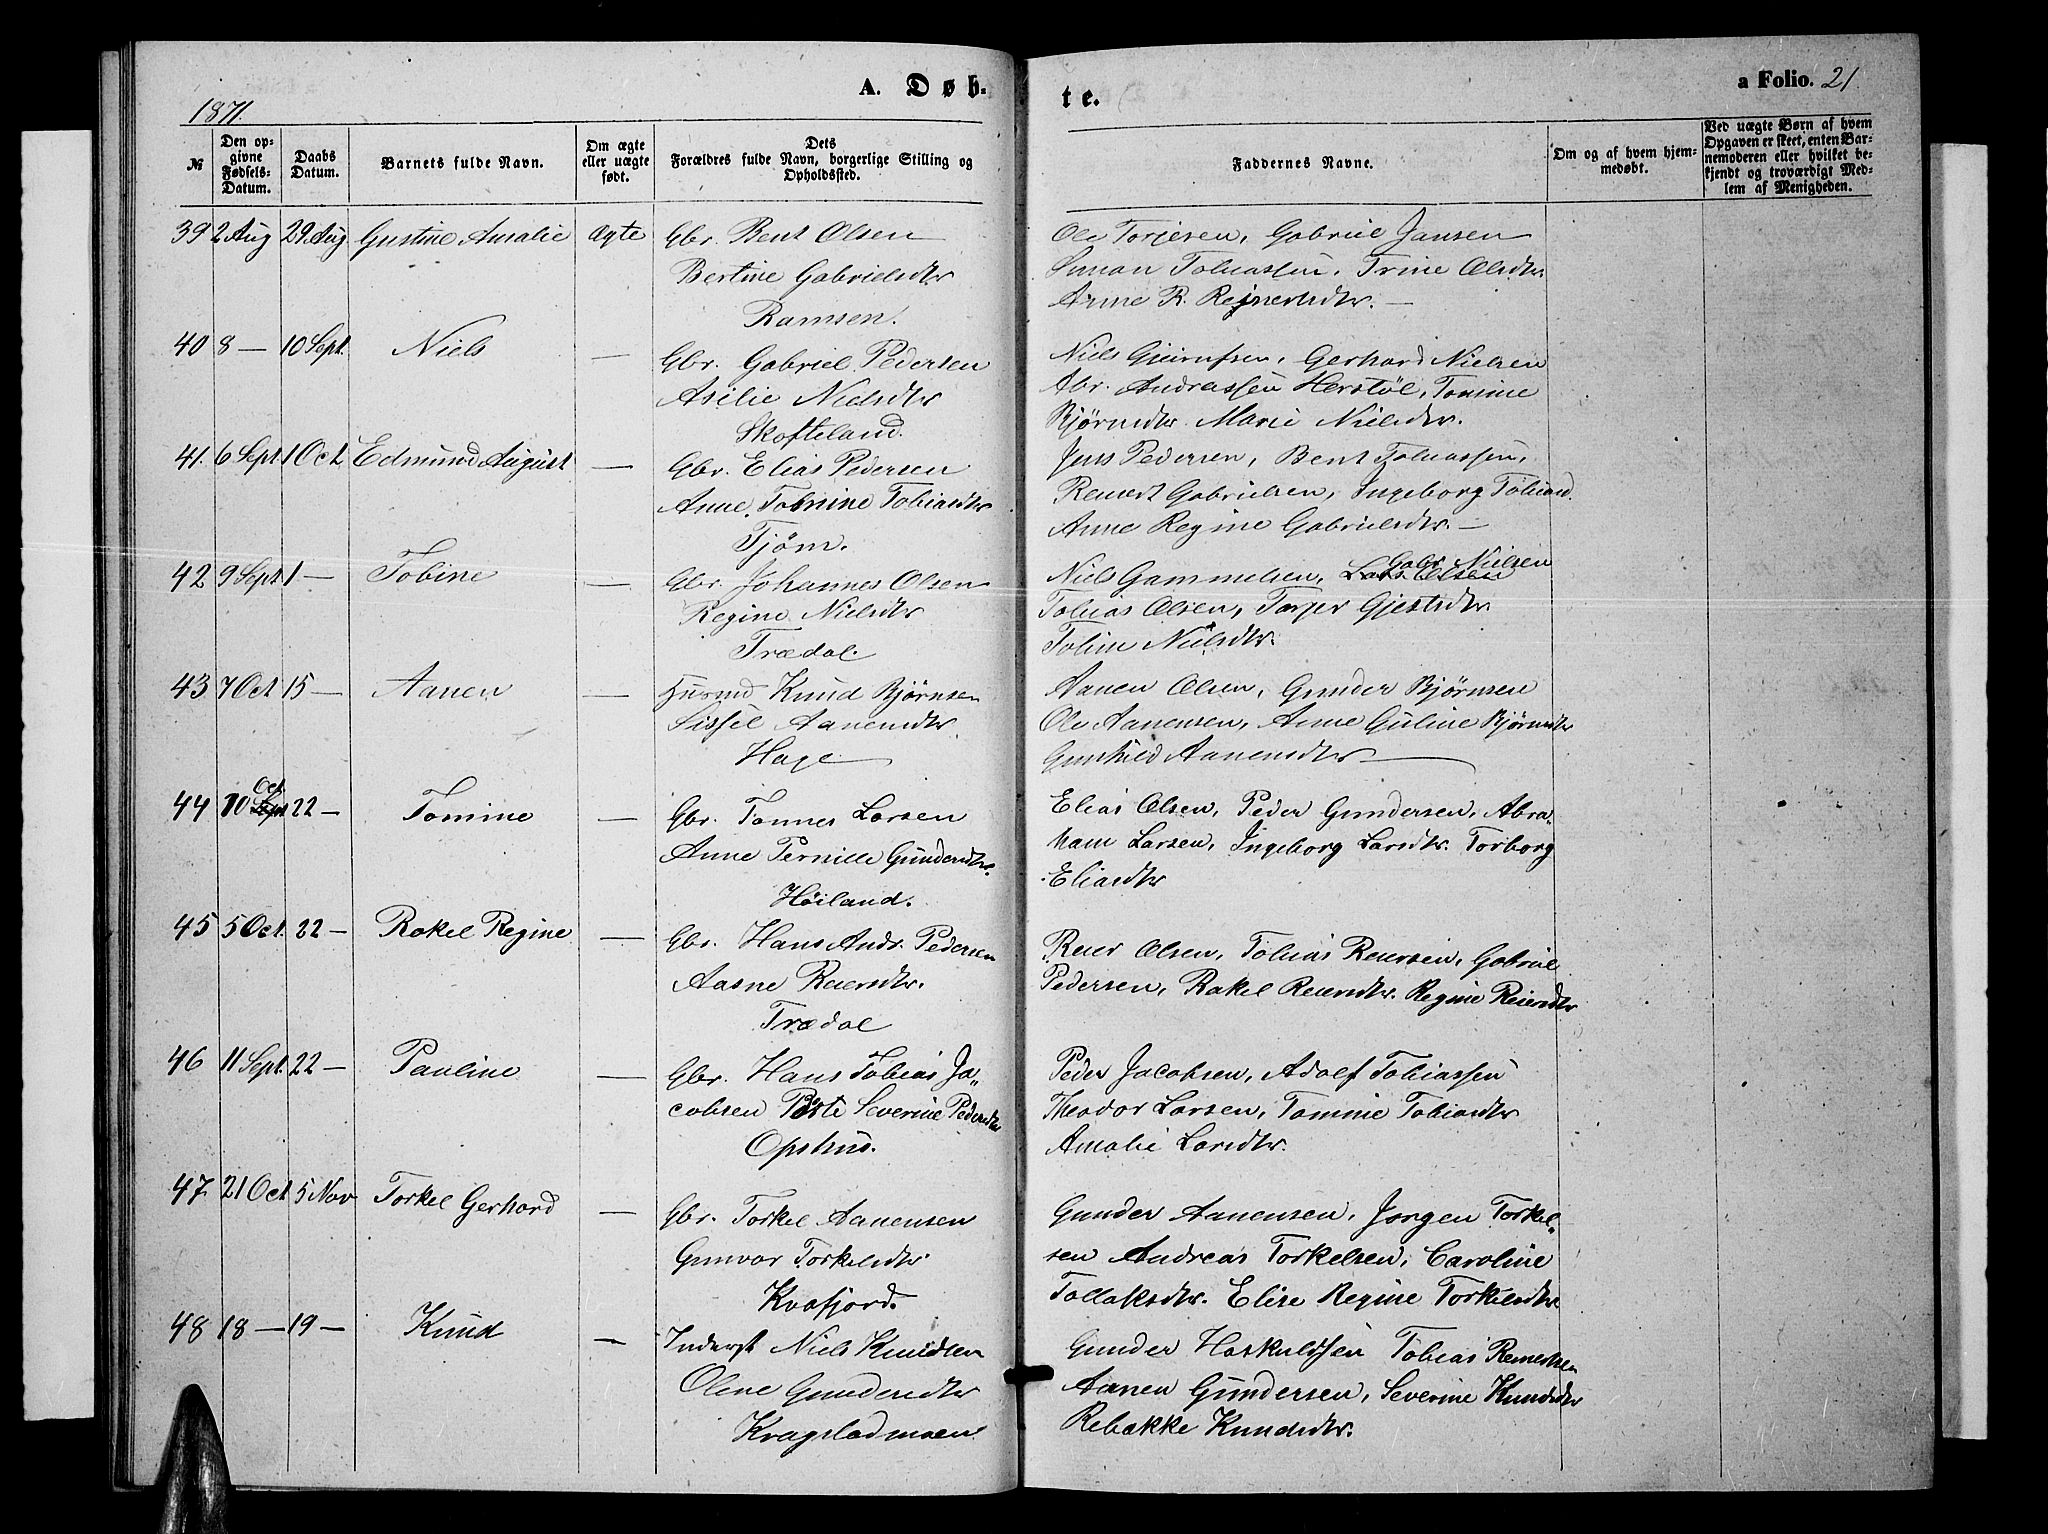 A. Døb-
te.
a Folio. 21.
1871.
№
Den opgivne Fødsels-Datum.
Daabs Datum.
Barnets fulde Navn.
Om ægte eller uægte født.
Dets Forældres fulde Navn, borgerlige Stilling og Opholdssted.
Faddernes Navne.
Om og af hvem hjemmedøbt.
Ved uægte Børn af hvem Opgaven er skeet, enten Barnemoderen eller hvilket bekjendt og troværdigt Medlem af Menigheden.
39 2 Aug 29 Aug Gustine Amalie Ægte Gbr. Bent Olsen
Bertine Gabrielsdtr
Ramsen.
Ole Torjesen, Gabriel Jansen
Simon Tobiassen, Trine Olsdtr.
Anne R. Reinertsdtr. —
40 8 — 10 Sept. Niels — Gbr. Gabriel Pedersen
Asilie Nielsdtr
Skofteland.
Niels Gjerulfsen, Gerhard Nielsen
Abr. Andreassen Herstøl, Tomine
Bjørnsdtr. Marie Nielsdtr.
41. 6 Sept. 1 Oct Edmund August — Gbr. Elias Pedersen
Anne Tomine Tobiasdtr
Tjøm.
Jens Pedersen, Bent Tobiassen,
Reinert Gabrielsen, Ingeborg Tobiasd.
Anne Regine Gabrielsdtr. —
42 9 Sept. 1 — Tobine — Gbr. Johannes Olsen
Regine Nielsdtr
Trædal.
Gabr. Nielsen
Niels Gammelsen, Lars Olsen
Tobias Olsen, Torjer Gjestsdtr
Tobine Nielsdtr.
43 7 Oct 15 — Aanen — Husmd Knud Bjørnsen
Sissel Aanensdtr
Hage
Aanen Olsen, Gunder Bjørnsen
Ole Aanensen, Anne Guline Bjørnsdtr
Gunhild Aanensdtr
Oct
44 10 Sept 22 — Tomine — Gbr. Tønnes Larsen
Anne Pernille Gundersdtr.
Høiland.
Elias Olsen, Peder Gundersen, Abra-
ham Larsen, Ingeborg Larsdtr. Torborg
Eliasdtr
45 5 Oct. 22 — Rakel Regine — Gbr. Hans Andr. Pedersen
Aasne Reiersdtr.
Trædal
Reier Olsen, Tobias Reiersen, Gabriel
Pedersen, Rakel Reiersdtr. Regine Reiersdtr
46 11 Sept. 22 — Pauline — Gbr. Hans Tobias Ja-
cobsen Severine Pedersdtr
Opshus.
Peder Jacobsen, Adolf Tobiassen
Theodor Larsen, Tomine Tobiasdtr
Amalie Larsdtr.
47. 21 Oct 5 Nov Torkel Gerhard — Gbr. Torkel Aanensen
Gunvor Torkelsdtr
Kvafjord.
Gunder Aanensen, Jørgen Torkel-
sen Andreas Torkelsen, Caroline
Tollaksdtr. Elise Regine Torkelsdtr
48 18 — 19 — Knud — Inderst Niels Knudsen
Olene Gundersdtr
Kragstadmoen
Gunder Haskuldsen Tobias Reinertsen
Aanen Gundersen, Severine Knudsdtr
Rebække Knudsdtr.